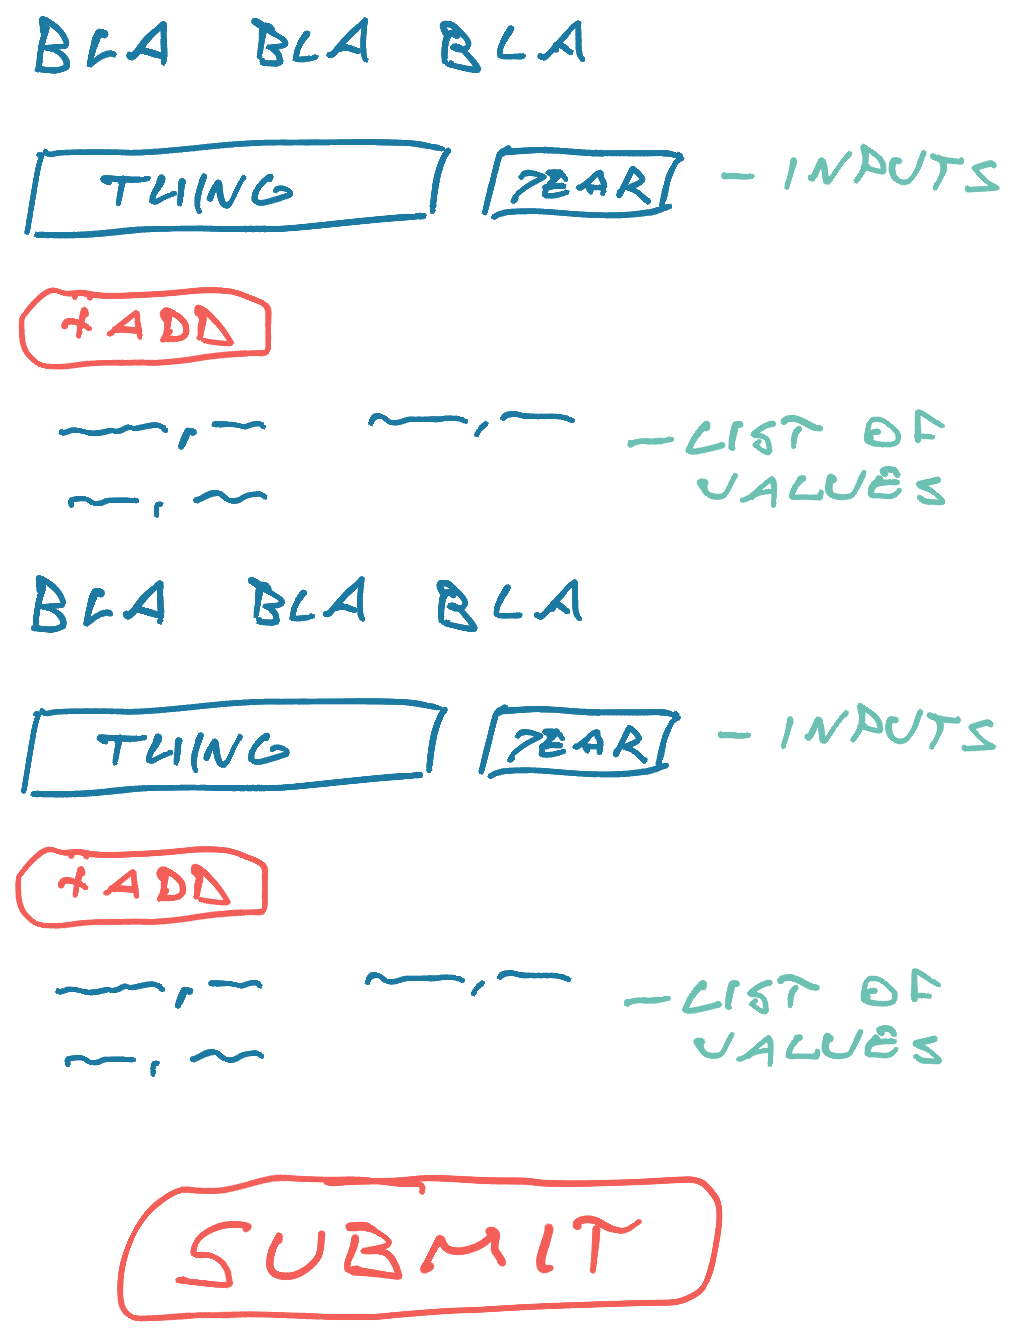 BLA BLA BLA
THING YEAR - INPUTS
+ADD
- LIST OF
VALUES
BLA BLA BLA
THING YEAR - INPUTS
+ADD
- LIST OF
VALUES
SUBMIT